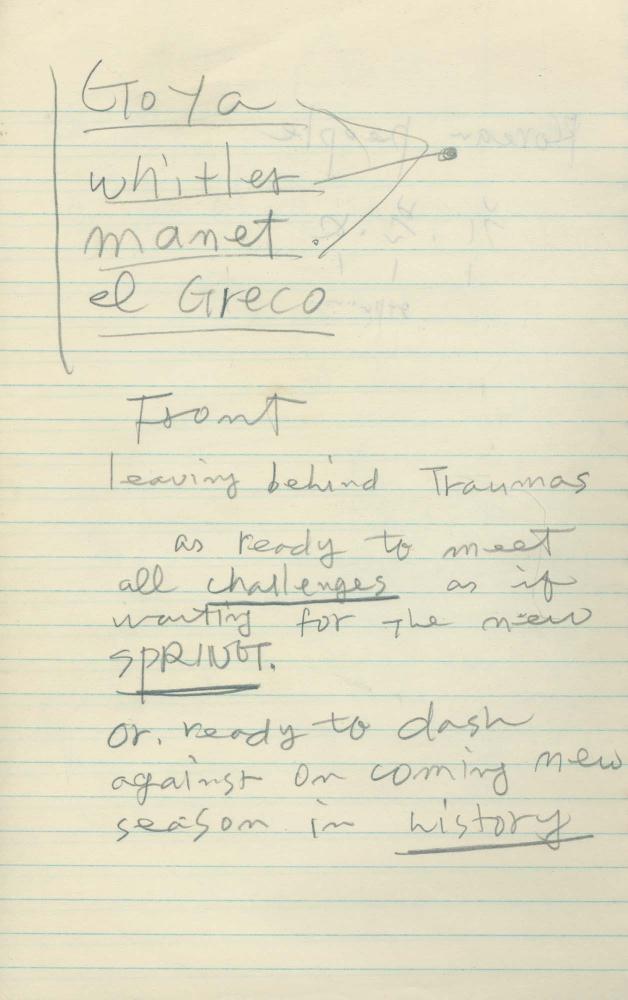 Goya
whitler
manet.
el Greco
Front
leaving behind Traumas
as ready to meet
all challenges as if
waiting for the new
SPRING.
or. ready to dash
against on coming new
season in history
Korean people